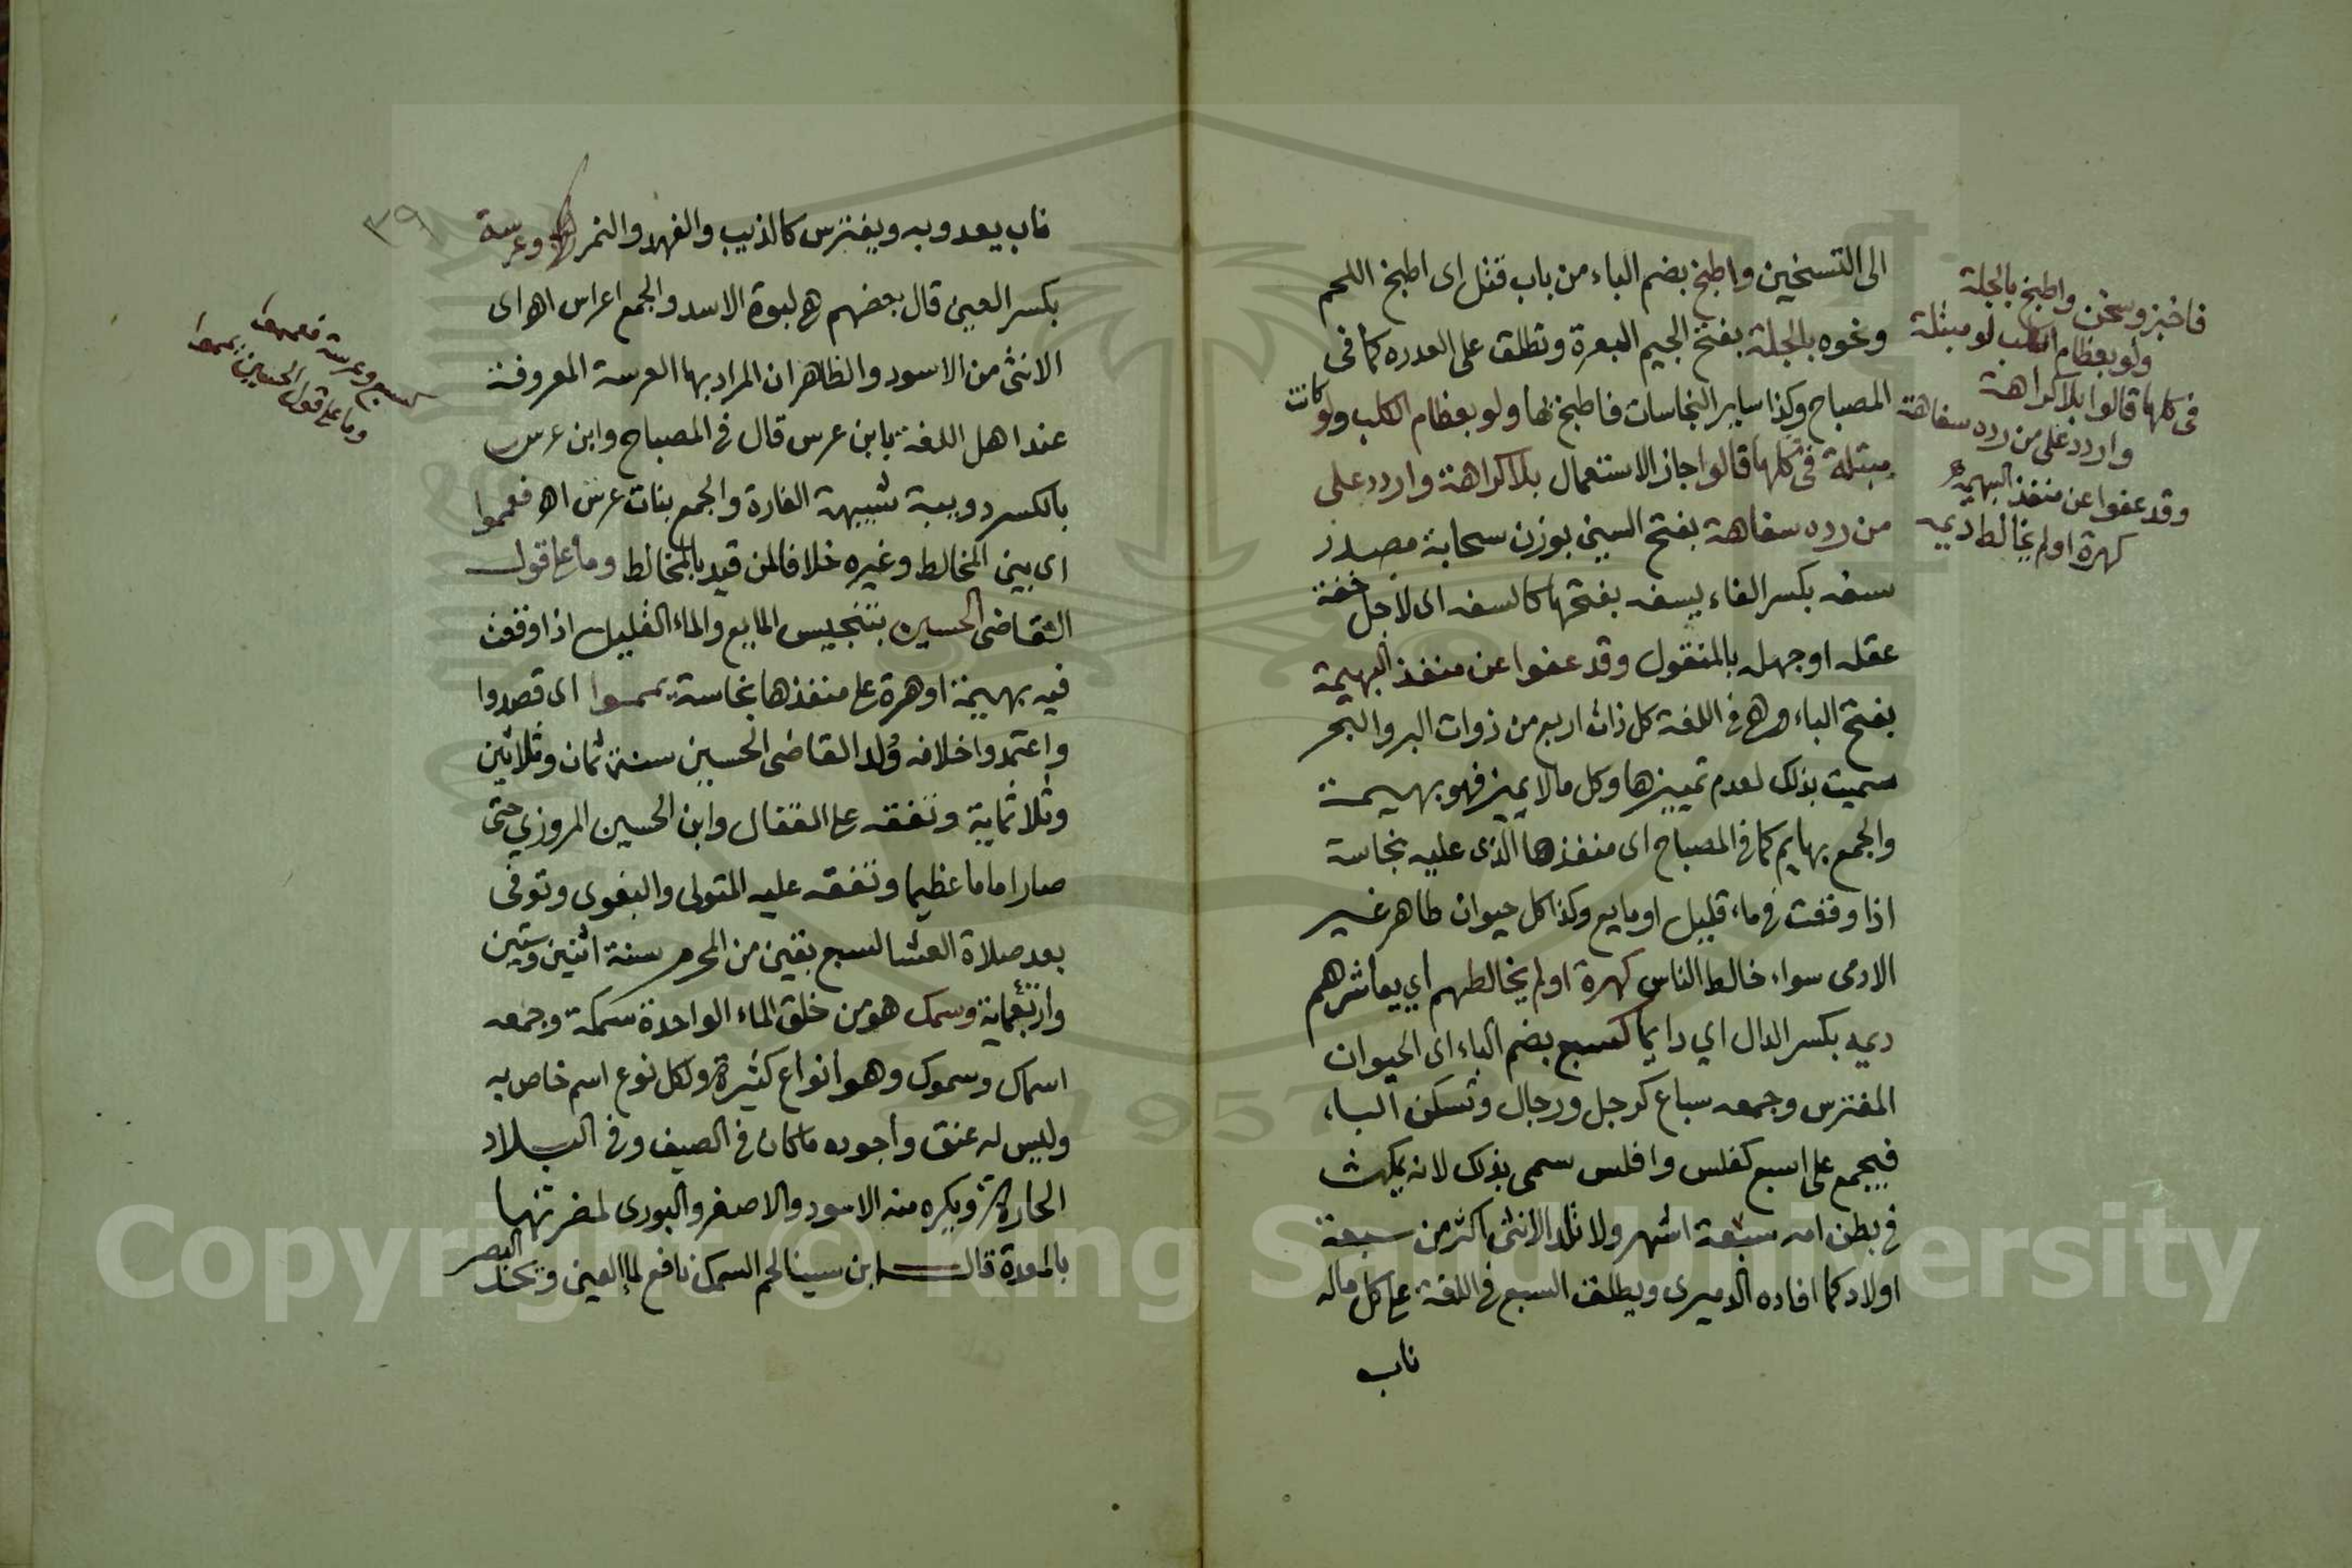 الى التسخين واطبخ بضم الباء من باب قتل اى اطبخ اللحم
ونحوه بالجلة بفتح الجيم البعرة وتطلق على العدره كما فى
المصباح وكذا ساير النجاسات فاطبخ بها ولو بعظام الكلب ولو كانت
مبتلة فى كلها قالوا جاز الاستعمال بلا كراهة واردد على
من رده سفاهة بفتح السين بوزن سحابة مصدر
سفه بكسر الفاء يسفه بفتحها كالسفه اى لاجل خفة
عقله او جهله بالمنقول وقد عفوا عن منفذ البهيمة
بفتح الباء وهى فى اللغة كل ذات اربع من ذوات البر والبحر
سميت بذلك لعدم تمييزها وكل ما لا يميز فهو بهيمة
والجمع بهايم كما فى المصباح اى منفذها الذى عليه نجاسة
اذا وقفت فى ماء قليل او مايع وكذا كل حيوان طاهر غير
الادمى سواء خالط الناس كهرة او لم يخالطهم اي يعاشرهم
ديمه بكسر الدال اي دايما كسبع بضم الباء اى الحيوان
المفترس وجمعه سباع كرجل ورجال وتسكن الباء
فيجمع على اسبع كفلس وافلس سمى بذلك لانه يمكث
فى بطن امه سبعة اشهر ولا تلد الانثى اكثر من سبعة
اولاد كما افاده الدميرى ويطلق السبع فى اللغة على كل ماله
ناب
فاخبز وسخن واطبخ بالجلة
ولو بعظام الكلب لو مبتلة
فى كلها قالوا بلا كراهة
واردد على من رده سفاهة
وقد عفوا عن منفذ البهيمه
كهرة او لم يخالط ديمه
٣٩
ناب يعدو به ويفترس كالذيب والفهد والنمر وعرسة
بكسر العين قال بعضهم هى لبوة الاسد والجمع اعراس اهـ اى
الانثى من الاسود والظاهر ان المراد بها العرسة المعروفة
عند اهل اللغة بابن عرس قال فى المصباح وابن عرس
بالكسر دويبة تشبيهة الفارة والجمع بنات عرس اهـ فعمموا
اى بين المخالط وغيره خلافا لمن قيد بالمخالط وما على قول
القاضى الحسين بتنجيس المايع والماء القليل اذا وقفت
فيه بهيمة او هرة على منفذها نجاسة يمموا اى قصدوا
واعتمدوا خلافه وُلد القاضى الحسين سنة ثمان وثلاثين
وثلاثماية وتفقه على القفال وابن الحسين المروزي حتى
صار اماما عظيما وتفقه عليه المتولى والبغوى وتوفى
بعد صلاة العشا لسبع بقين من المحرم سنة اثنين وستين
واربعماية وسمك هو من خلق الماء الواحدة سمكة وجمعه
اسماك وسموك وهو انواع كثيرة ولكل نوع اسم خاص به
وليس له عنق واجوده ما كان فى الصيف وفى البلاد
الحارة ويكره منه الاسود والاصفر والبورى لمضرتها
بالمعدة قال ابن سينا لحم السمك نافع لما العين ويحد البصر
كسبع وعرسة فعمموا
وما على قول الحسين يمموا
Copyright © King Saud University
1957